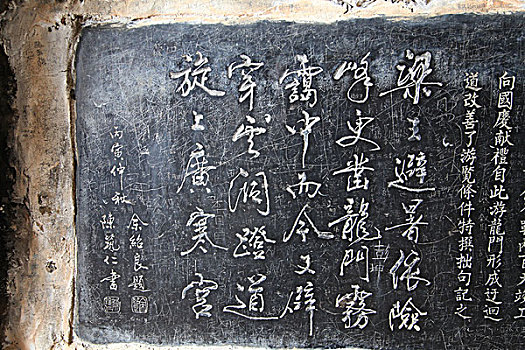 向國慶献禮自此游龍門形成迂迴
道改善了游覽條件特撰拙句記之
梁王避暑依險
峰更鑿龍門霧
靄中而今又辟
穿雲洞蹬道
旋上廣寒宮
丙寅仲秋
余紹良題
陳仁書